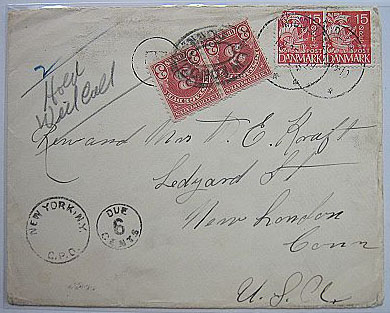 15 15
DANMARK DANMARK
3 3
2
Hold
Will Call
Rev and Mrs T. E. Kraft
Ledyard St
New London
Conn
U. S. A.
NEW YORK, N.Y.
DUE
6
CENTS